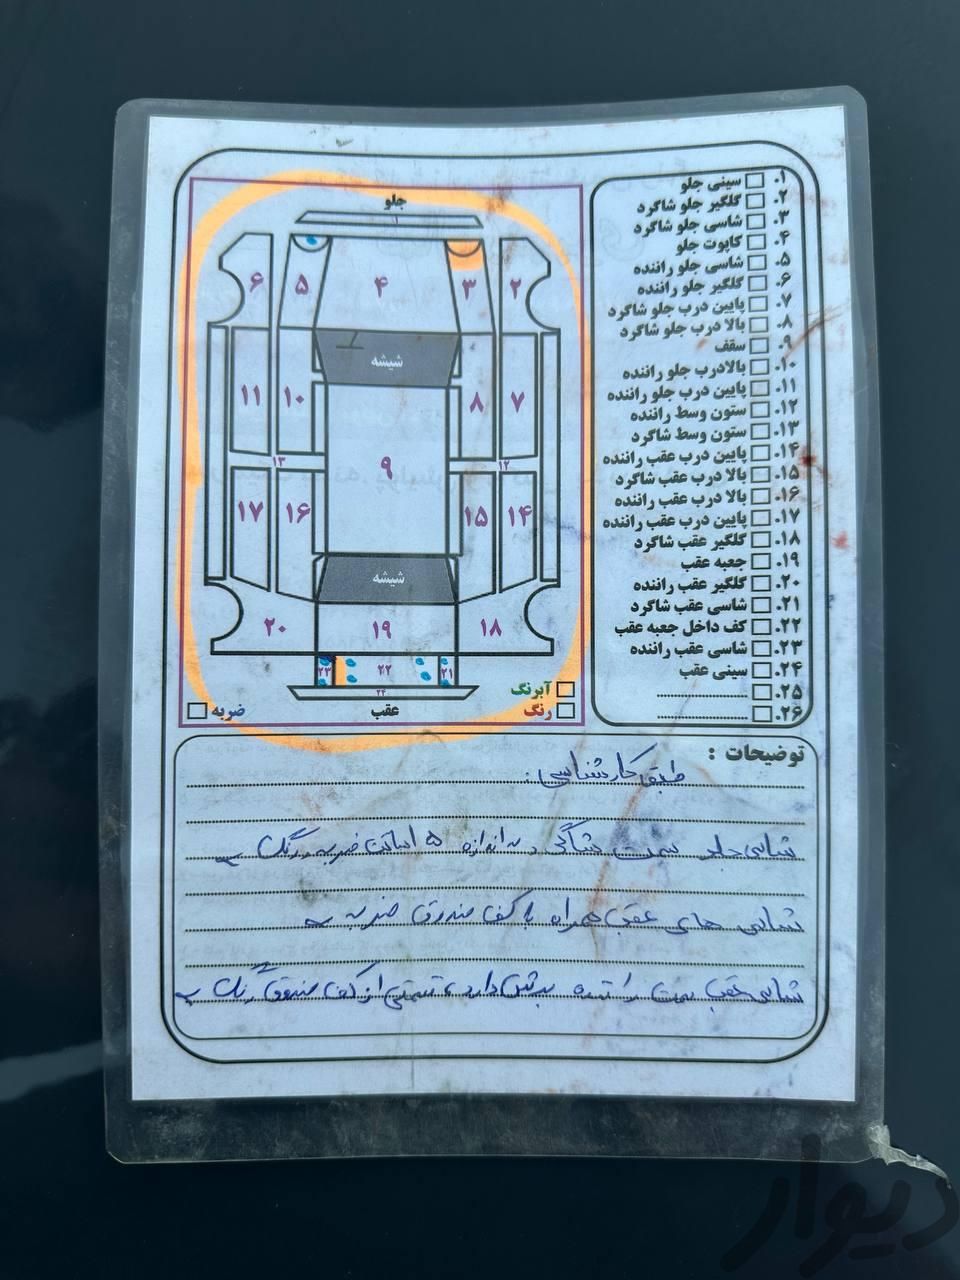 جلو
۱
۶
۵
۴
۳
۲
شیشه
۱۱
۱۰
۸
۷
۹
۱۳
۱۲
۱۷
۱۶
۱۵
۱۴
شیشه
۲۰
۱۹
۱۸
۲۳
۲۲
۲۱
۲۴
عقب
آبرنگ
رنگ
ضربه
۱. سینی جلو
۲. گلگیر جلو شاگرد
۳. شاسی جلو شاگرد
۴. کاپوت جلو
۵. شاسی جلو راننده
۶. گلگیر جلو راننده
۷. پایین درب جلو شاگرد
۸. بالا درب جلو شاگرد
۹. سقف
۱۰. بالادرب جلو راننده
۱۱. پایین درب جلو راننده
۱۲. ستون وسط راننده
۱۳. ستون وسط شاگرد
۱۴. پایین درب عقب راننده
۱۵. بالا درب عقب شاگرد
۱۶. بالا درب عقب راننده
۱۷. پایین درب عقب راننده
۱۸. گلگیر عقب شاگرد
۱۹. جعبه عقب
۲۰. گلگیر عقب راننده
۲۱. شاسی عقب شاگرد
۲۲. کف داخل جعبه عقب
۲۳. شاسی عقب راننده
۲۴. سینی عقب
۲۵.
۲۶.
توضیحات :
طبق کارشناسی:
شاسی جلو سمت شاگرد به اندازه ۵ سانت ضربه و رنگ
شاسی های عقب همراه با کف صندوق ضربه
شاسی عقب سمت راننده برش دارد، قسمتی از کف صندوق رنگ
دیوار